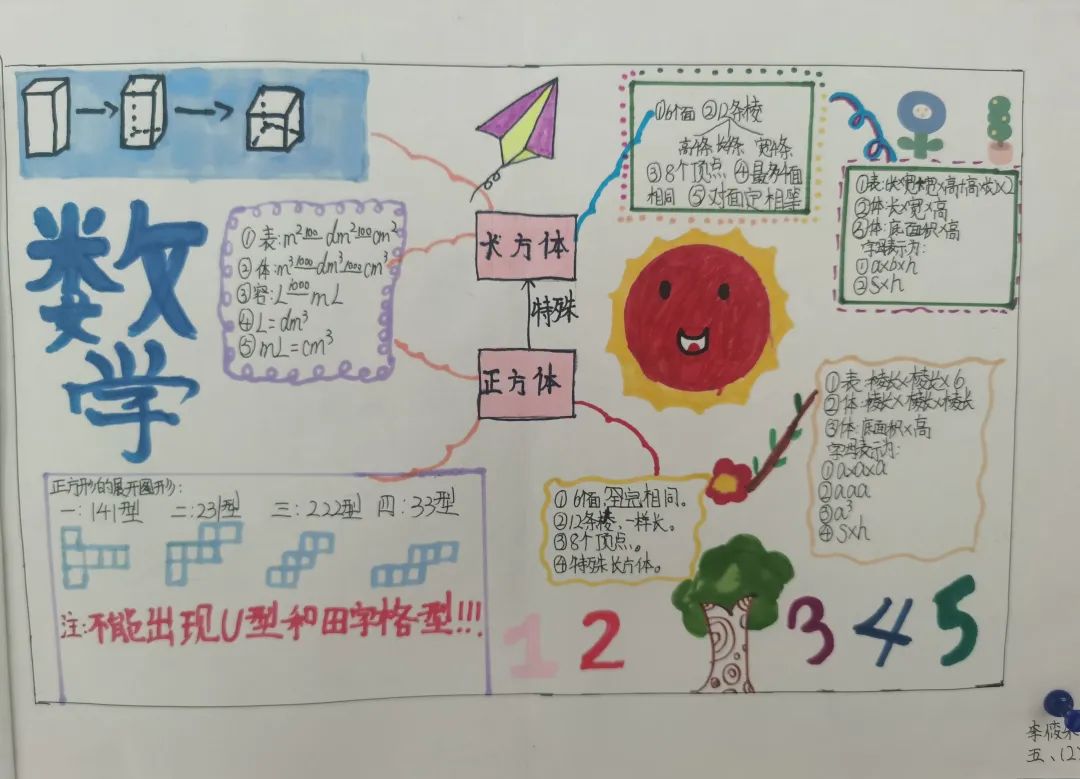 数
学
①表:m² 100 dm² 100 cm²
②体:m³ 1000 dm³ 1000 cm³
③容:L 1000 mL
④L=dm³
⑤mL=cm³
长方体
特殊
正方体
①6个面 ②12条棱
高4条 长4条 宽4条
③8个顶点 ④最多4个面
相同 ⑤对面定相等
②体:长×宽×高
③体:底面积×高
字母表示为:
①a×b×h
②S×h
①表:棱长×棱长×6
②体:棱长×棱长×棱长
③体:底面积×高
字母表示为:
①a×a×a
②aaa
③a³
④S×h
①6个面,全完相同。
②12条棱,一样长。
③8个顶点。
④特殊长方体。
正方形的展开图形:
一:141型 二:231型 三:222型 四:33型
注:不能出现U型和田字格型!!!
1 2 3 4 5
五、(2)